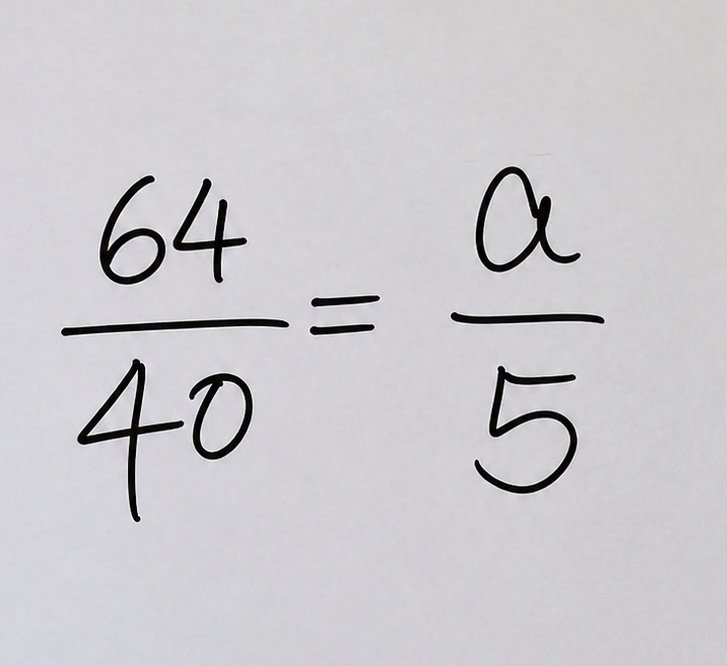 64/40 = a/5